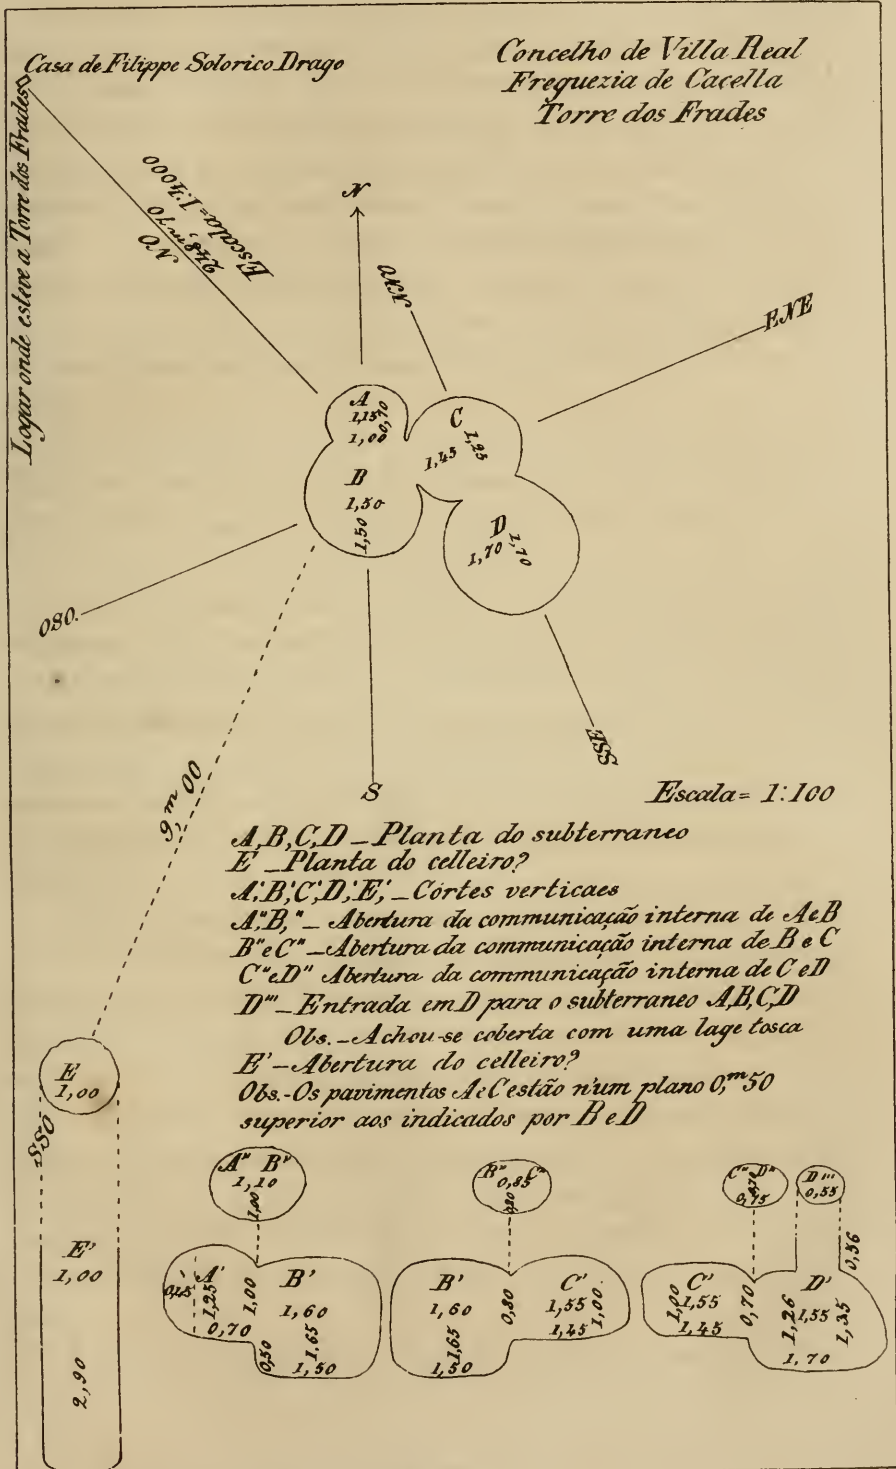 Casa de Filippe Solorico Drago
Concelho de Villa Real
Freguezia de Cacella
Torre dos Frades
Logar onde esteve a Torre dos Frades
Escala=1:4000
248,m70
NO
N
NNO
ENE
A
1,15
0,70
1,00
C
1,25
1,45
B
1,50
1,50
D
1,70
1,70
OSO.
SSE
S
9,m00
Escala= 1:100
A,B,C,D_Planta do subterraneo
E _Planta do celleiro?
A'.B'.C'.D'.E'._Córtes verticaes
A".B,"_ Abertura da communicação interna de A e B
B" e C"_Abertura da communicação interna de B e C
C" e D" Abertura da communicação interna de C e D
D'''_Entrada em D para o subterraneo A,B,C,D
Obs._Achou-se coberta com uma lage tosca
E'-Abertura do celleiro?
Obs.-Os pavimentos A e C estão n'um plano 0,m50
superior aos indicados por B e D
E
1,00
OSS
A" B"
1,10
1,00
B" C"
0,85
0,80
C" D"
0,70
0,75
D'''
0,55
0,56
E'
1,00
2,90
A'
1,25
0,70
1,00
B'
1,60
0,50
1,65
1,50
B'
1,60
1,65
1,50
0,80
C'
1,55
1,00
1,45
C'
1,00
1,55
1,45
0,70
D'
1,26
1,55
1,35
1,70